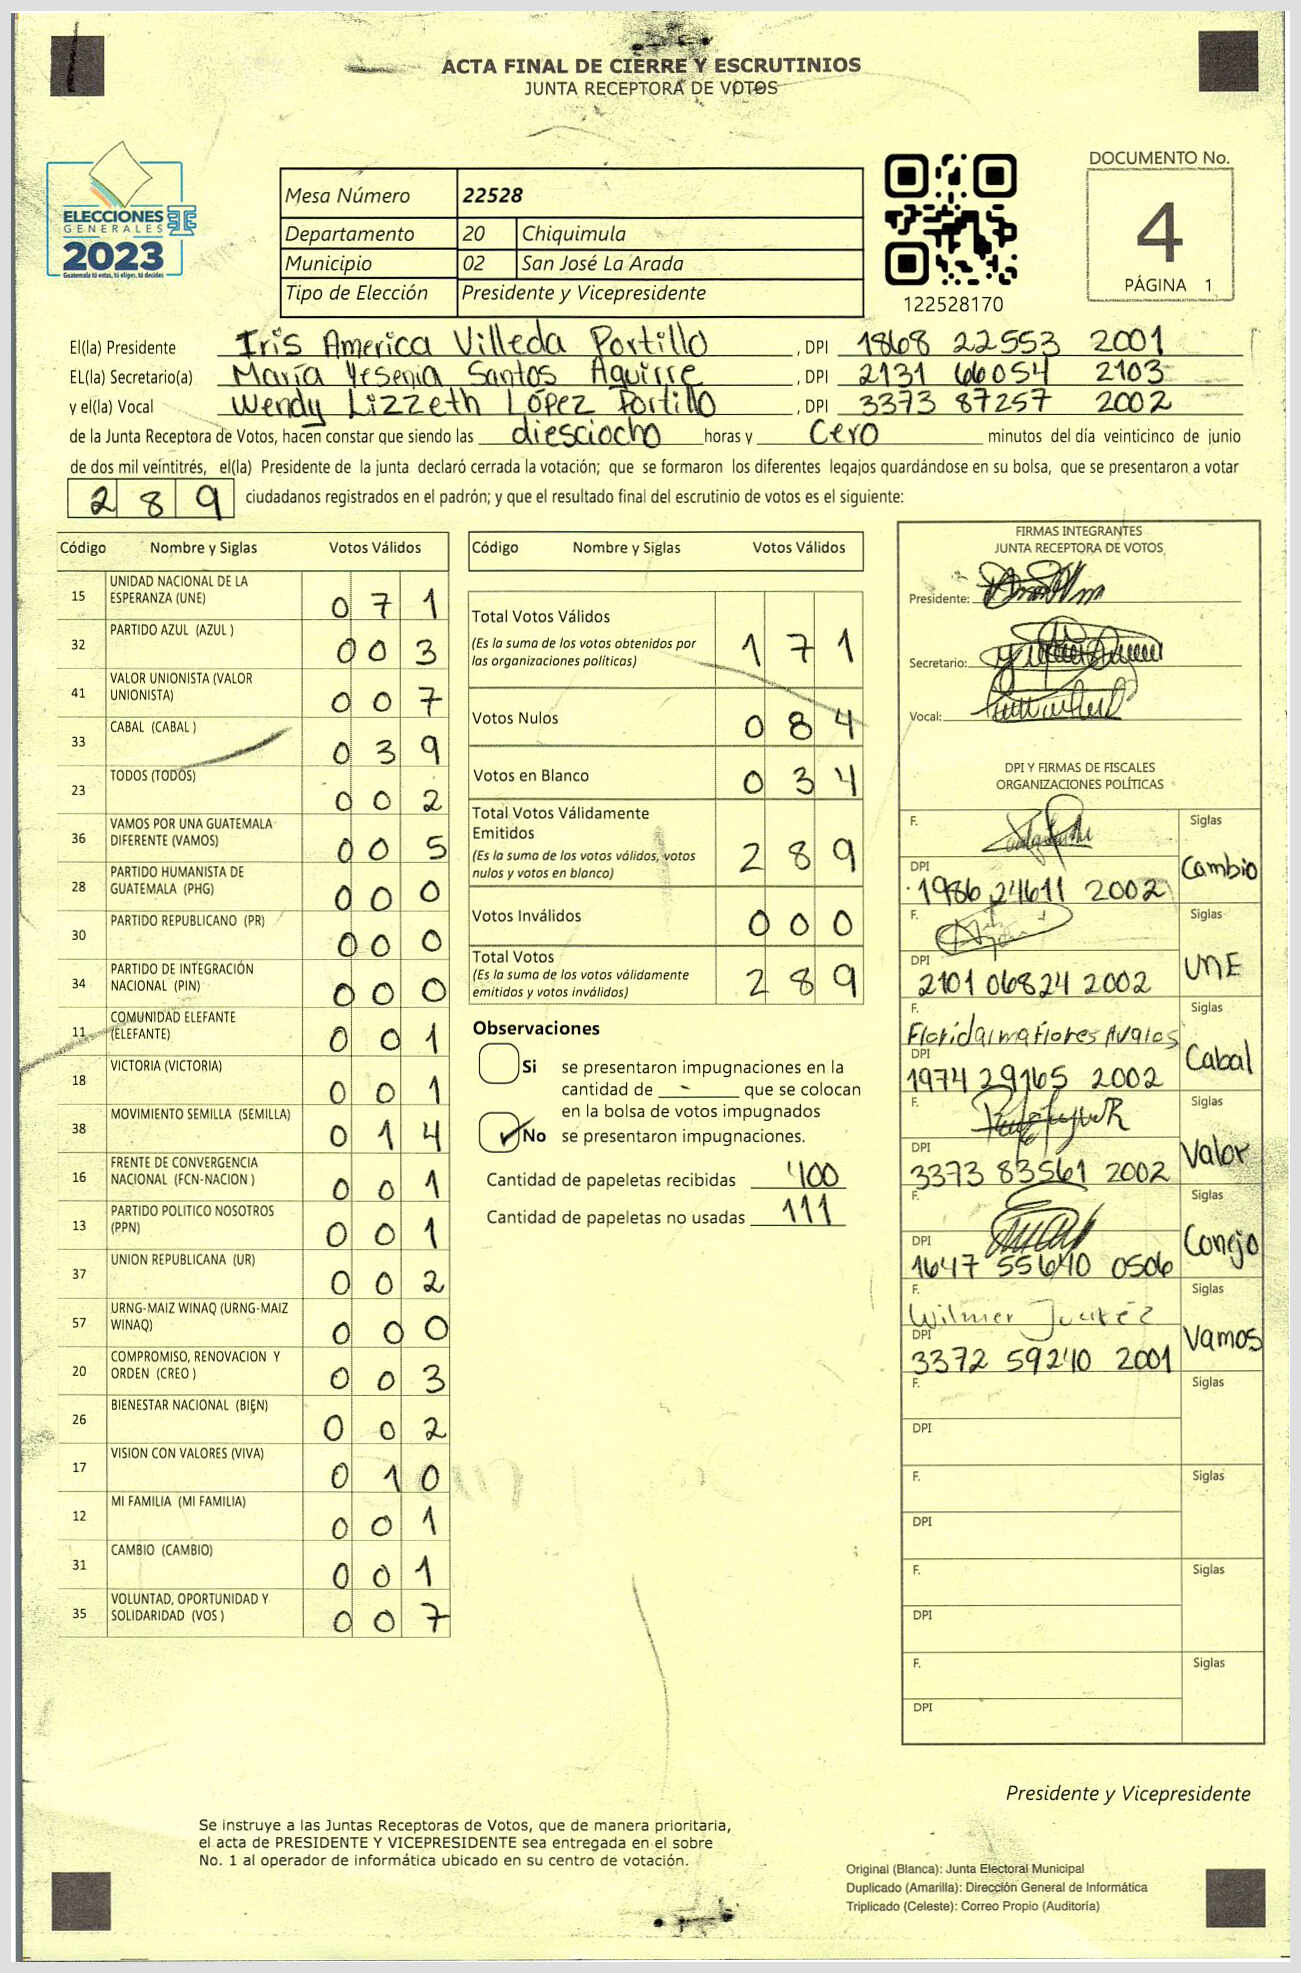 ACTA FINAL DE CIERRE Y ESCRUTINIOS
JUNTA RECEPTORA DE VOTOS
ELECCIONES
GENERALES
2023
Guatemala tú votas, tú eliges, tú decides
Mesa Número 22528
Departamento 20 Chiquimula
Municipio 02 San José La Arada
Tipo de Elección Presidente y Vicepresidente
122528170
DOCUMENTO No.
4
PÁGINA 1
El(la) Presidente Iris America Villeda Portillo , DPI 1868 22553 2001
EL(la) Secretario(a) María Yesenia Santos Aguirre , DPI 2131 66054 2103
y el(la) Vocal Wendy Lizzeth López Portillo , DPI 3373 87257 2002
de la Junta Receptora de Votos, hacen constar que siendo las diesciocho horas y cero minutos del día veinticinco de junio
de dos mil veintitrés, el(la) Presidente de la junta declaró cerrada la votación; que se formaron los diferentes legajos guardándose en su bolsa, que se presentaron a votar
289 ciudadanos registrados en el padrón; y que el resultado final del escrutinio de votos es el siguiente:
Código Nombre y Siglas Votos Válidos
15 UNIDAD NACIONAL DE LA ESPERANZA (UNE) 071
32 PARTIDO AZUL (AZUL ) 003
41 VALOR UNIONISTA (VALOR UNIONISTA) 007
33 CABAL (CABAL ) 039
23 TODOS (TODOS) 002
36 VAMOS POR UNA GUATEMALA DIFERENTE (VAMOS) 005
28 PARTIDO HUMANISTA DE GUATEMALA (PHG) 000
30 PARTIDO REPUBLICANO (PR) 000
34 PARTIDO DE INTEGRACIÓN NACIONAL (PIN) 000
11 COMUNIDAD ELEFANTE (ELEFANTE) 001
18 VICTORIA (VICTORIA) 001
38 MOVIMIENTO SEMILLA (SEMILLA) 014
16 FRENTE DE CONVERGENCIA NACIONAL (FCN-NACION ) 001
13 PARTIDO POLITICO NOSOTROS (PPN) 001
37 UNION REPUBLICANA (UR) 002
57 URNG-MAIZ WINAQ (URNG-MAIZ WINAQ) 000
20 COMPROMISO, RENOVACION Y ORDEN (CREO ) 003
26 BIENESTAR NACIONAL (BIEN) 002
17 VISION CON VALORES (VIVA) 010
12 MI FAMILIA (MI FAMILIA) 001
31 CAMBIO (CAMBIO) 001
35 VOLUNTAD, OPORTUNIDAD Y SOLIDARIDAD (VOS ) 007
Código Nombre y Siglas Votos Válidos
Total Votos Válidos 171
(Es la suma de los votos obtenidos por
las organizaciones políticas)
Votos Nulos 084
Votos en Blanco 034
Total Votos Válidamente
Emitidos 289
(Es la suma de los votos válidos, votos
nulos y votos en blanco)
Votos Inválidos 000
Total Votos 289
(Es la suma de los votos válidamente
emitidos y votos inválidos)
Observaciones
Si se presentaron impugnaciones en la
cantidad de - que se colocan
en la bolsa de votos impugnados
No se presentaron impugnaciones.
Cantidad de papeletas recibidas 400
Cantidad de papeletas no usadas 111
FIRMAS INTEGRANTES
JUNTA RECEPTORA DE VOTOS
Presidente:
Secretario:
Vocal:
DPI Y FIRMAS DE FISCALES
ORGANIZACIONES POLÍTICAS
F. Siglas
DPI Cambio
1986 24611 2002
F. Siglas
DPI UNE
2101 06824 2002
F. Siglas
Floridalma Flores Avalos
DPI Cabal
1974 29165 2002
F. Siglas
DPI Valor
3373 83561 2002
F. Siglas
DPI Conejo
1647 55640 0506
F. Siglas
Wilmer Juárez
DPI Vamos
3372 59240 2001
F. Siglas
DPI
F. Siglas
DPI
F. Siglas
DPI
F. Siglas
DPI
Presidente y Vicepresidente
Se instruye a las Juntas Receptoras de Votos, que de manera prioritaria,
el acta de PRESIDENTE Y VICEPRESIDENTE sea entregada en el sobre
No. 1 al operador de informática ubicado en su centro de votación.
Original (Blanca): Junta Electoral Municipal
Duplicado (Amarilla): Dirección General de Informática
Triplicado (Celeste): Correo Propio (Auditoría)